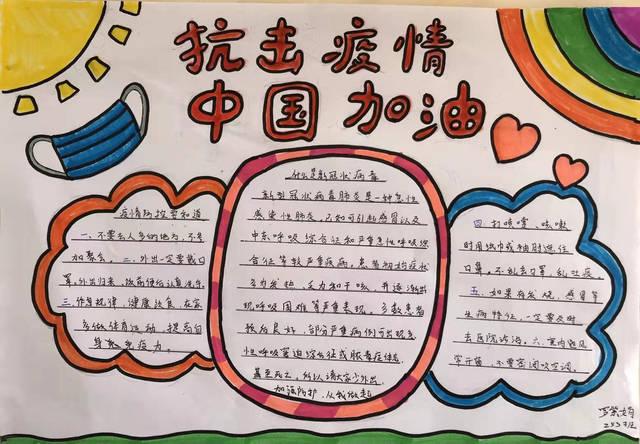 抗击疫情
中国 加油
疫情防控要知道
一、不要去人多的地方,不参
加聚会 二、外出一定要戴口
罩,外出归来,饭前便后认真洗手
三、作息规律,健康饮食,在家
多做体育运动,提高自
身免疫力。
什么是新冠状病毒
新型冠状病毒肺炎是一种急性
感染性肺炎,已知可引起感冒以及
中东呼吸综合征和严重急性呼吸综
合征等较严重疾病,患者初始症状
多为发热、乏力和干咳,并逐渐出
现呼吸困难等严重表现。多数患者
预后良好,部分严重病例可出现急
性呼吸窘迫综合征或脓毒症休克
甚至死亡,所以请大家少外出
加强防护,从我做起
四、打喷嚏、咳嗽
时用纸巾或袖肘遮住
口鼻,不乱丢口罩,乱吐痰
五、如果有发烧,感冒等
生病特征,一定要及时
去医院诊治。六、室内通风
常开窗,不要密闭吹空调。